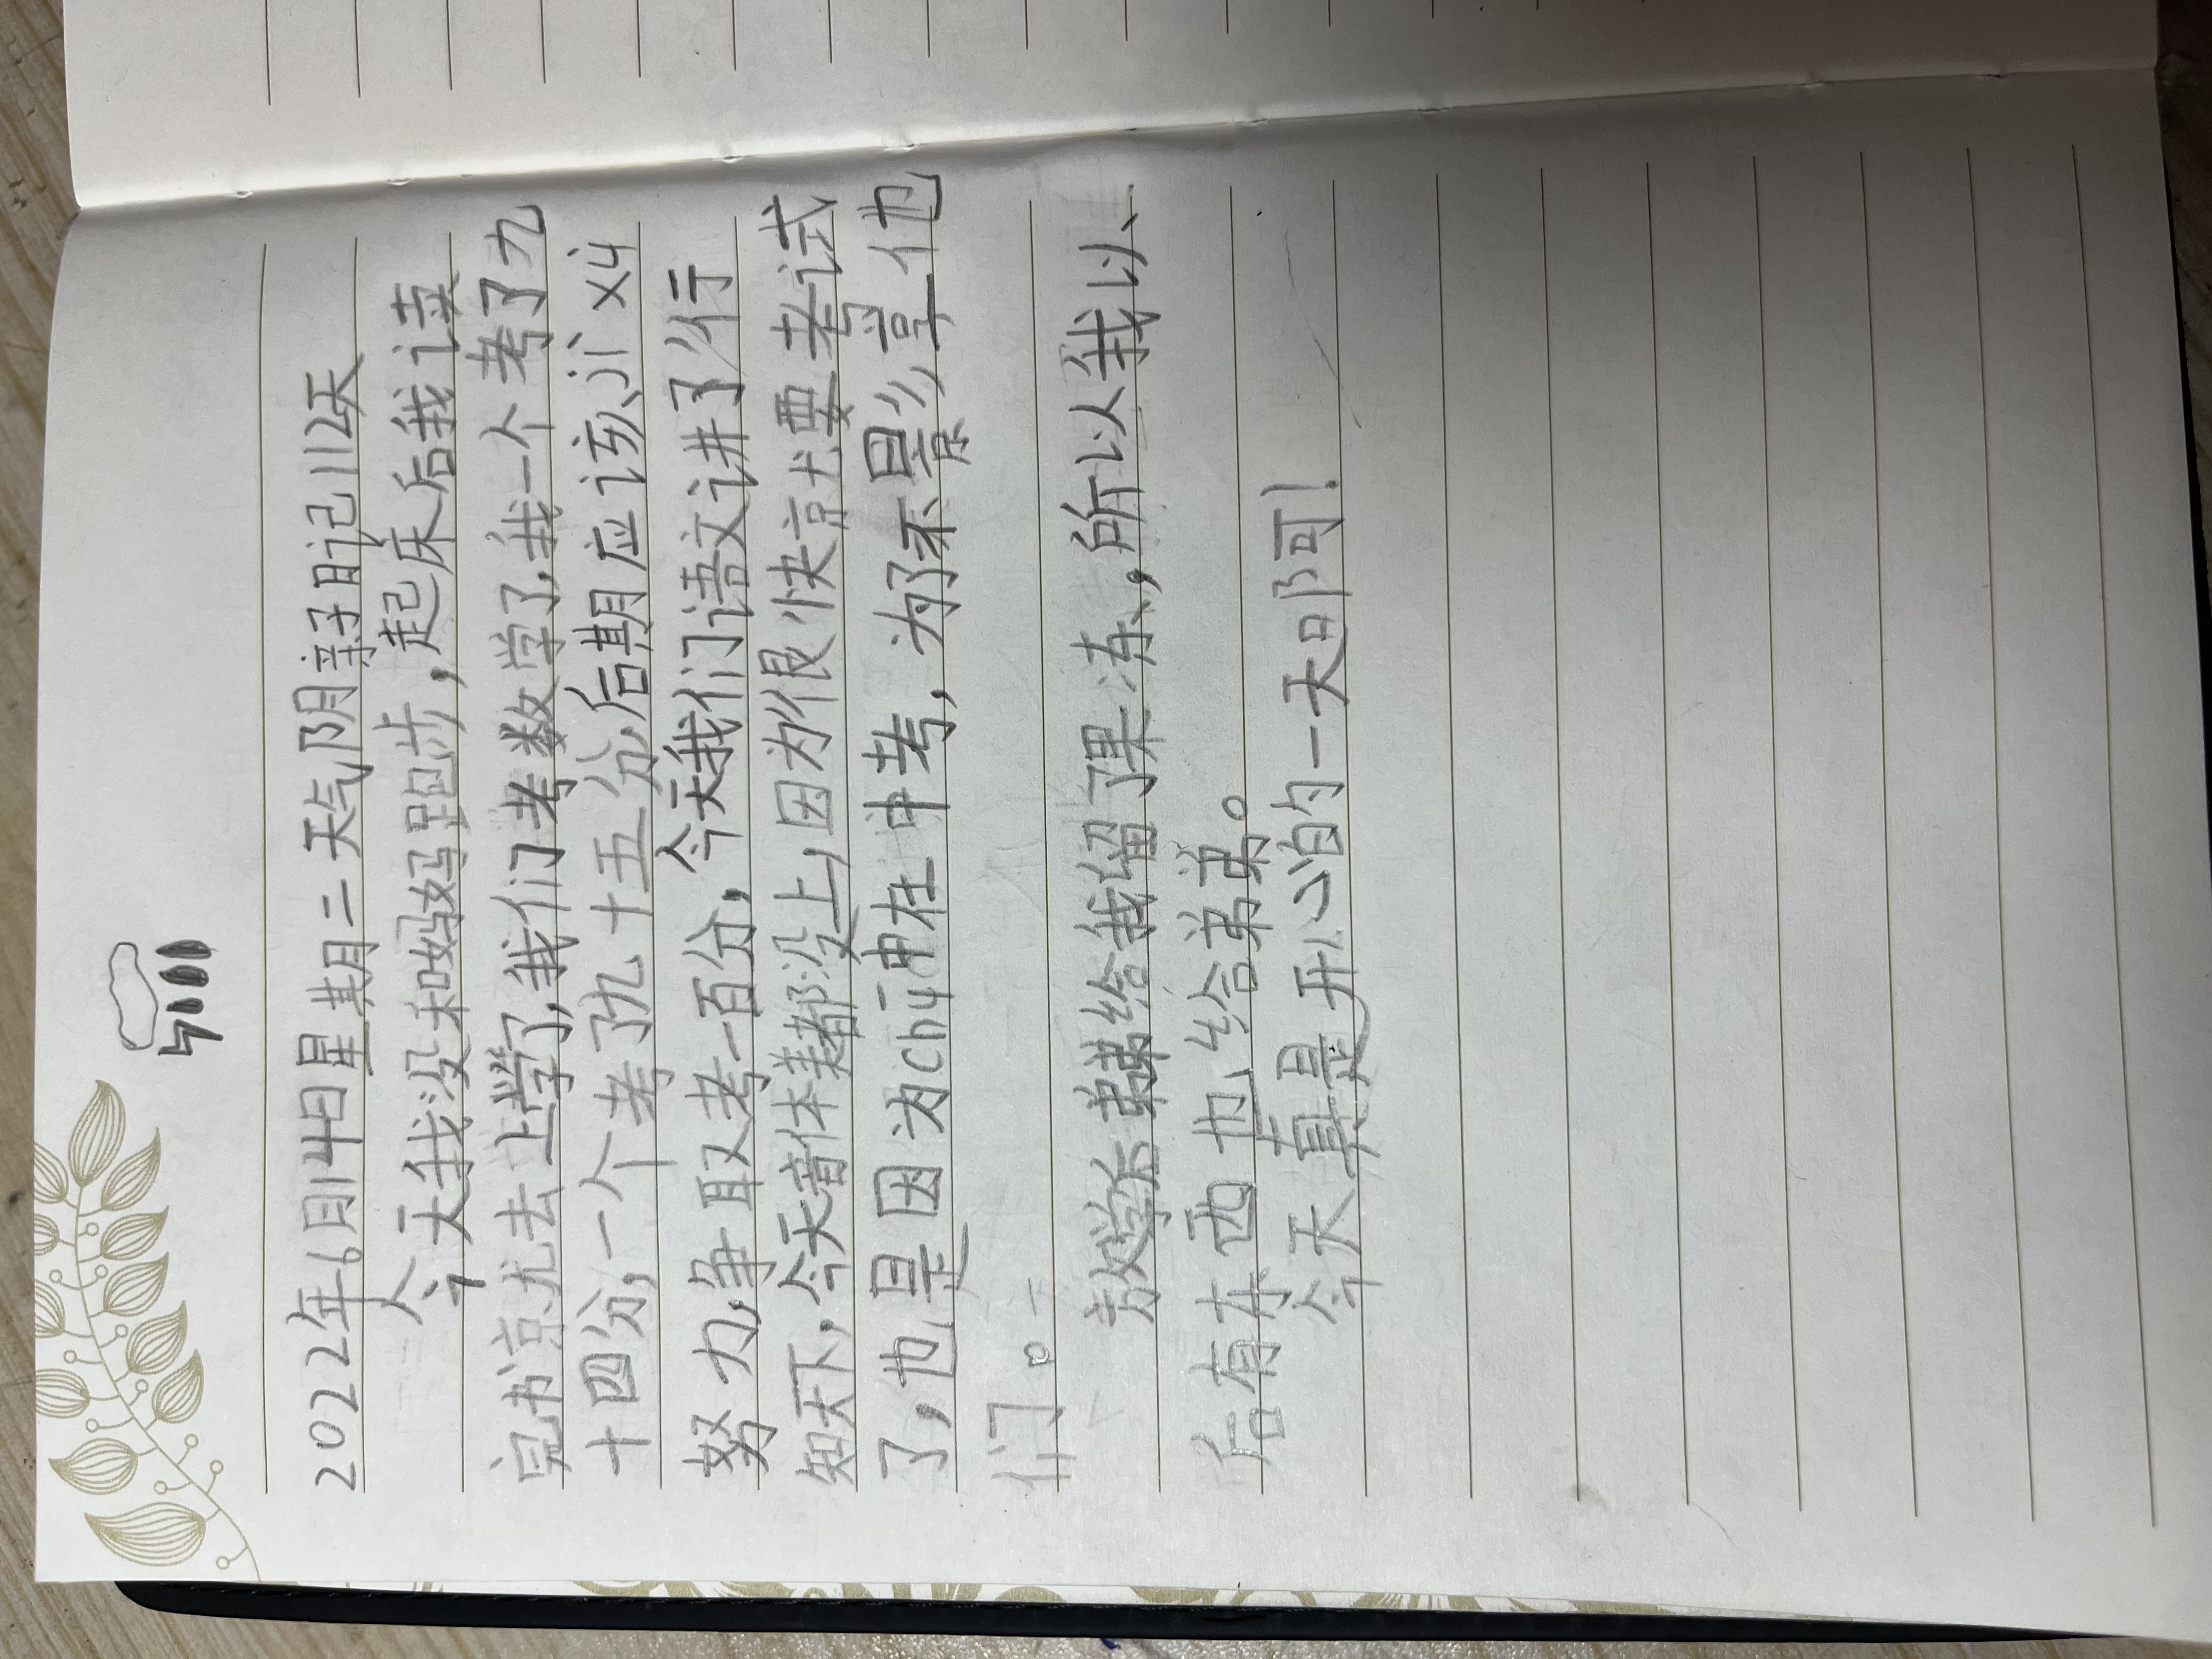 2022年6月14日星期二天气阴亲子日记112天
今天我没和妈妈跑步，起床后我读
完书京尤去上学了,我们考数学了,我一个考了九
十四分,一个考了九十五分,后期应该jì xù
努力,争取考一百分,今天我们语文讲了/行
知天下,今天音体美都没上,因为很快京尤要考试
了,也是因为chū中在中考,为了不影享他
们。
放学后弟弟给我留了果冻,所以我以
后有东西也给弟弟。
今天真是开心的一天啊!